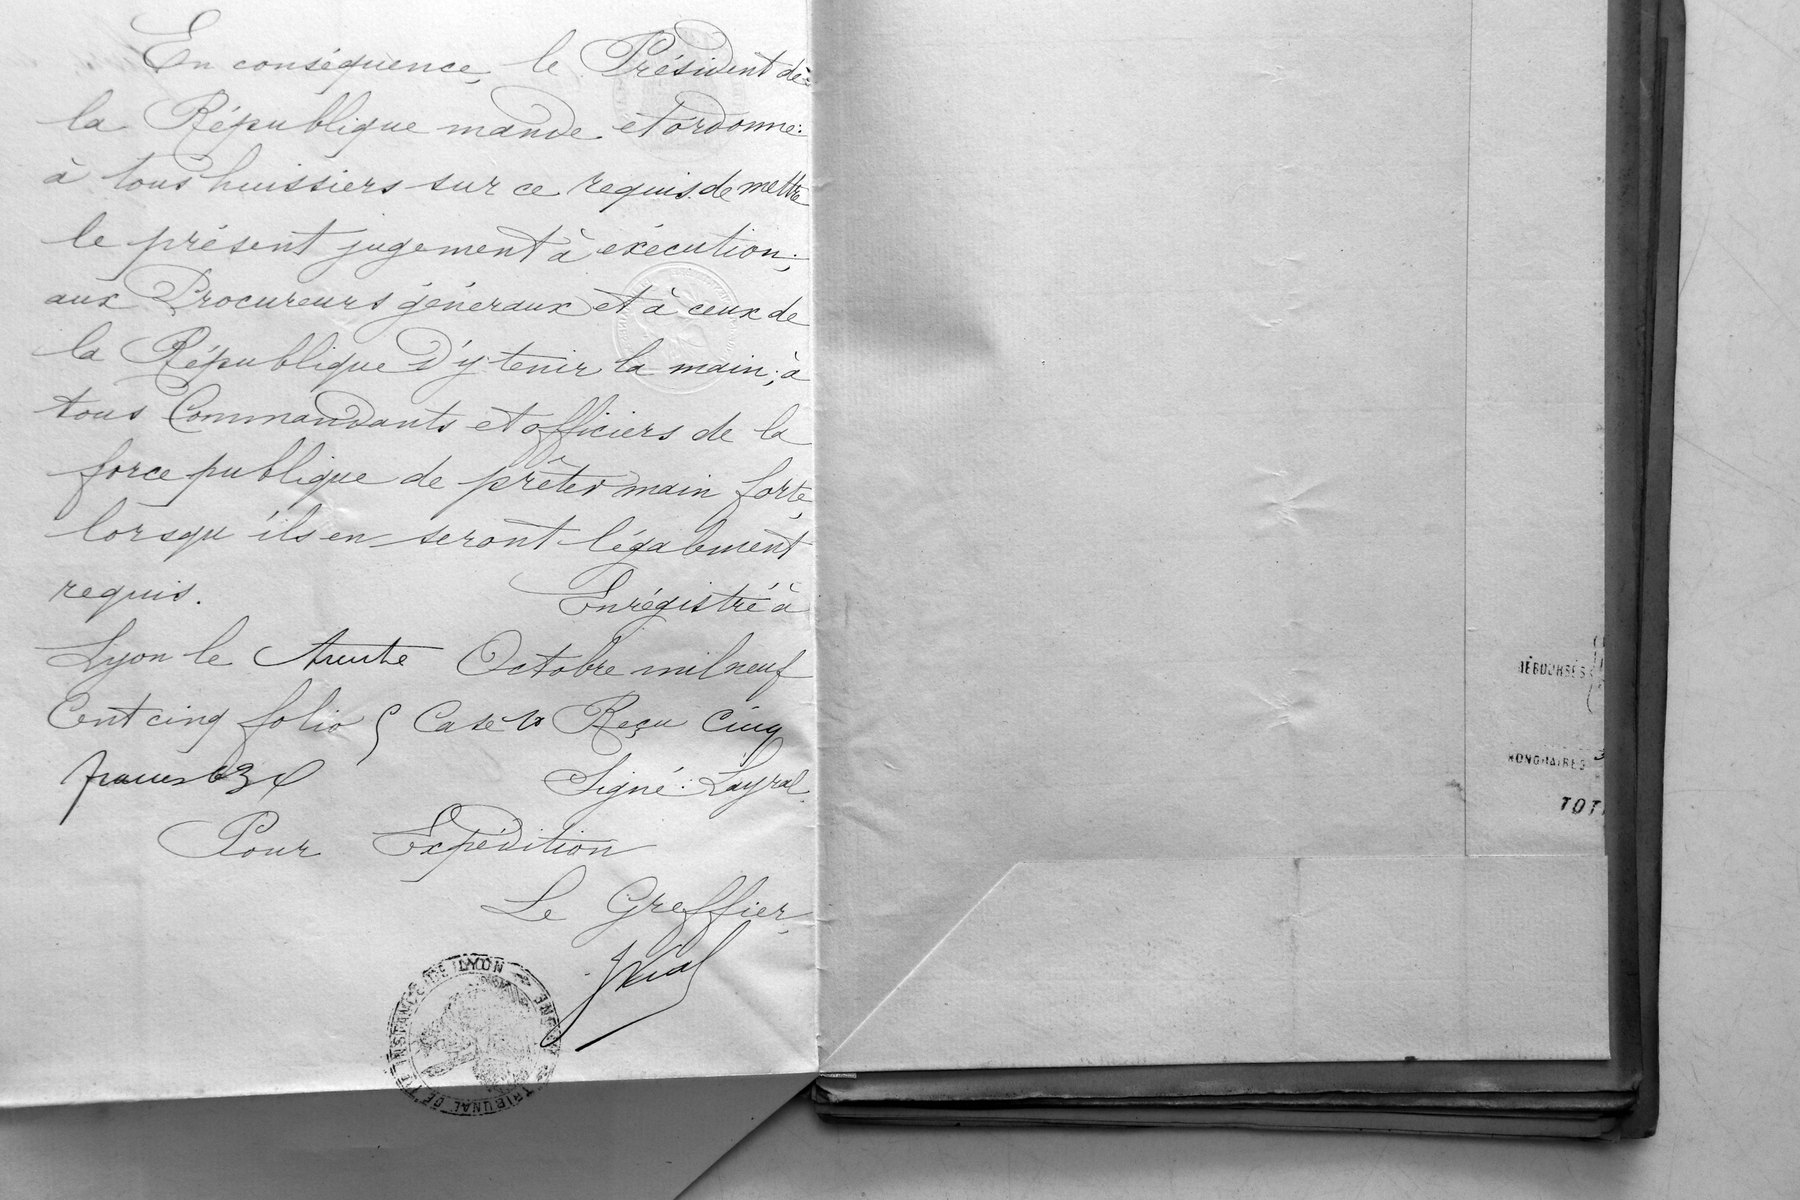 En conséquence, le Président de
la République mande et ordonne:
à tous huissiers sur ce requis de mettre
le présent jugement à exécution;
aux Procureurs généraux et à ceux de
la République d'y tenir la main; à
tous Commandants et officiers de la
force publique de prêter main forte,
lorsqu'ils en seront légalement
requis. Enrégistré à
Lyon le trente Octobre mil neuf
Cent cinq folio Case Reçu Cinq
francs 63 Signé: Layral.
Pour Expédition
Le Greffier,
TRIBUNAL DE 1E INSTANCE DE LYON RHONE
DÉBOURSÉS
HONORAIRES
TOT